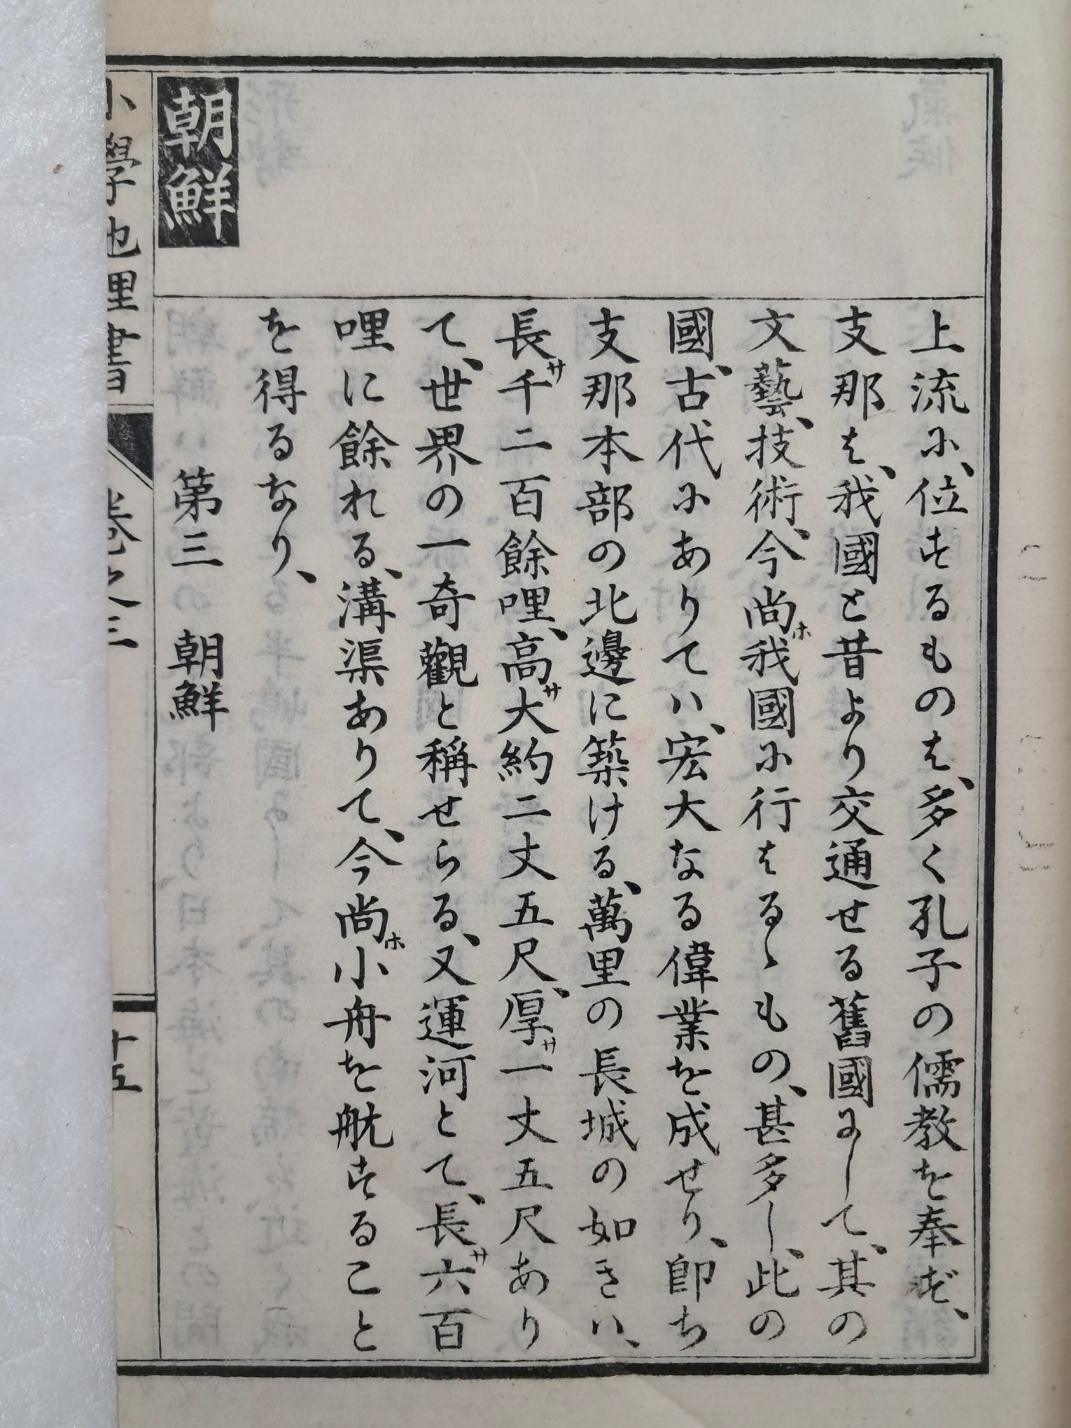 上流に、位するものは、多く孔子の儒教を奉ず、
支那は、我國と昔より交通せる舊國にして、其の
文藝、技術、今尚ホ我國に行はるゝもの、甚多し、此の
國、古代にありてハ、宏大なる偉業を成せり、卽ち
支那本部の北邊に築ける、萬里の長城の如きハ、
長サ千二百餘哩、高サ大約二丈五尺、厚サ一丈五尺あり
て、世界の一奇觀と稱せらる、又運河とて、長サ六百
哩に餘れる、溝渠ありて、今尚ホ小舟を航することと
を得るなり、
朝鮮
第三 朝鮮
小學地理書 卷之三 十五